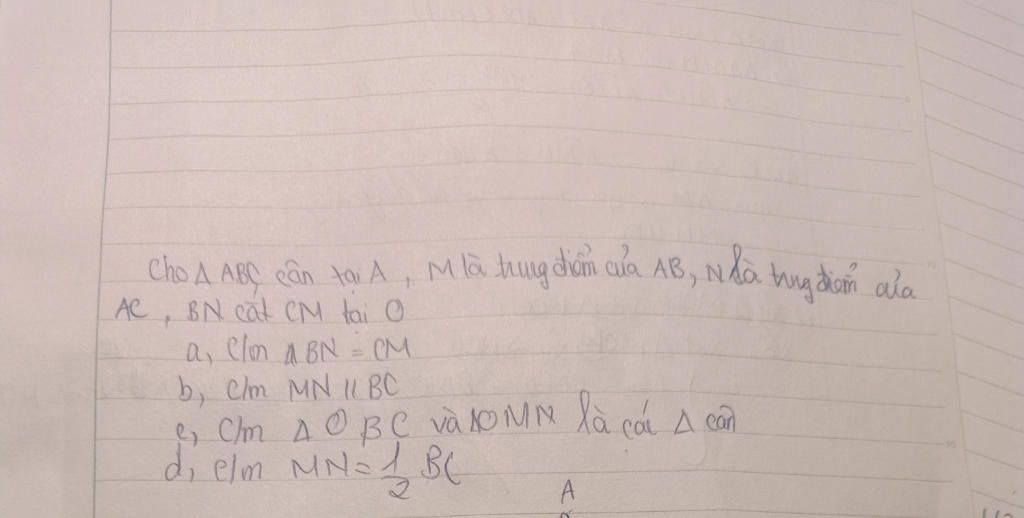 Cho Δ ABC cân tại A, M là trung điểm của AB, N là trung điểm của
AC, BN cắt CM tại O
a, C/m Δ BN = CM
b, C/m MN // BC
c, C/m Δ OBC và ΔOMN là các Δ cân
d, C/m MN = 1/2 BC
A